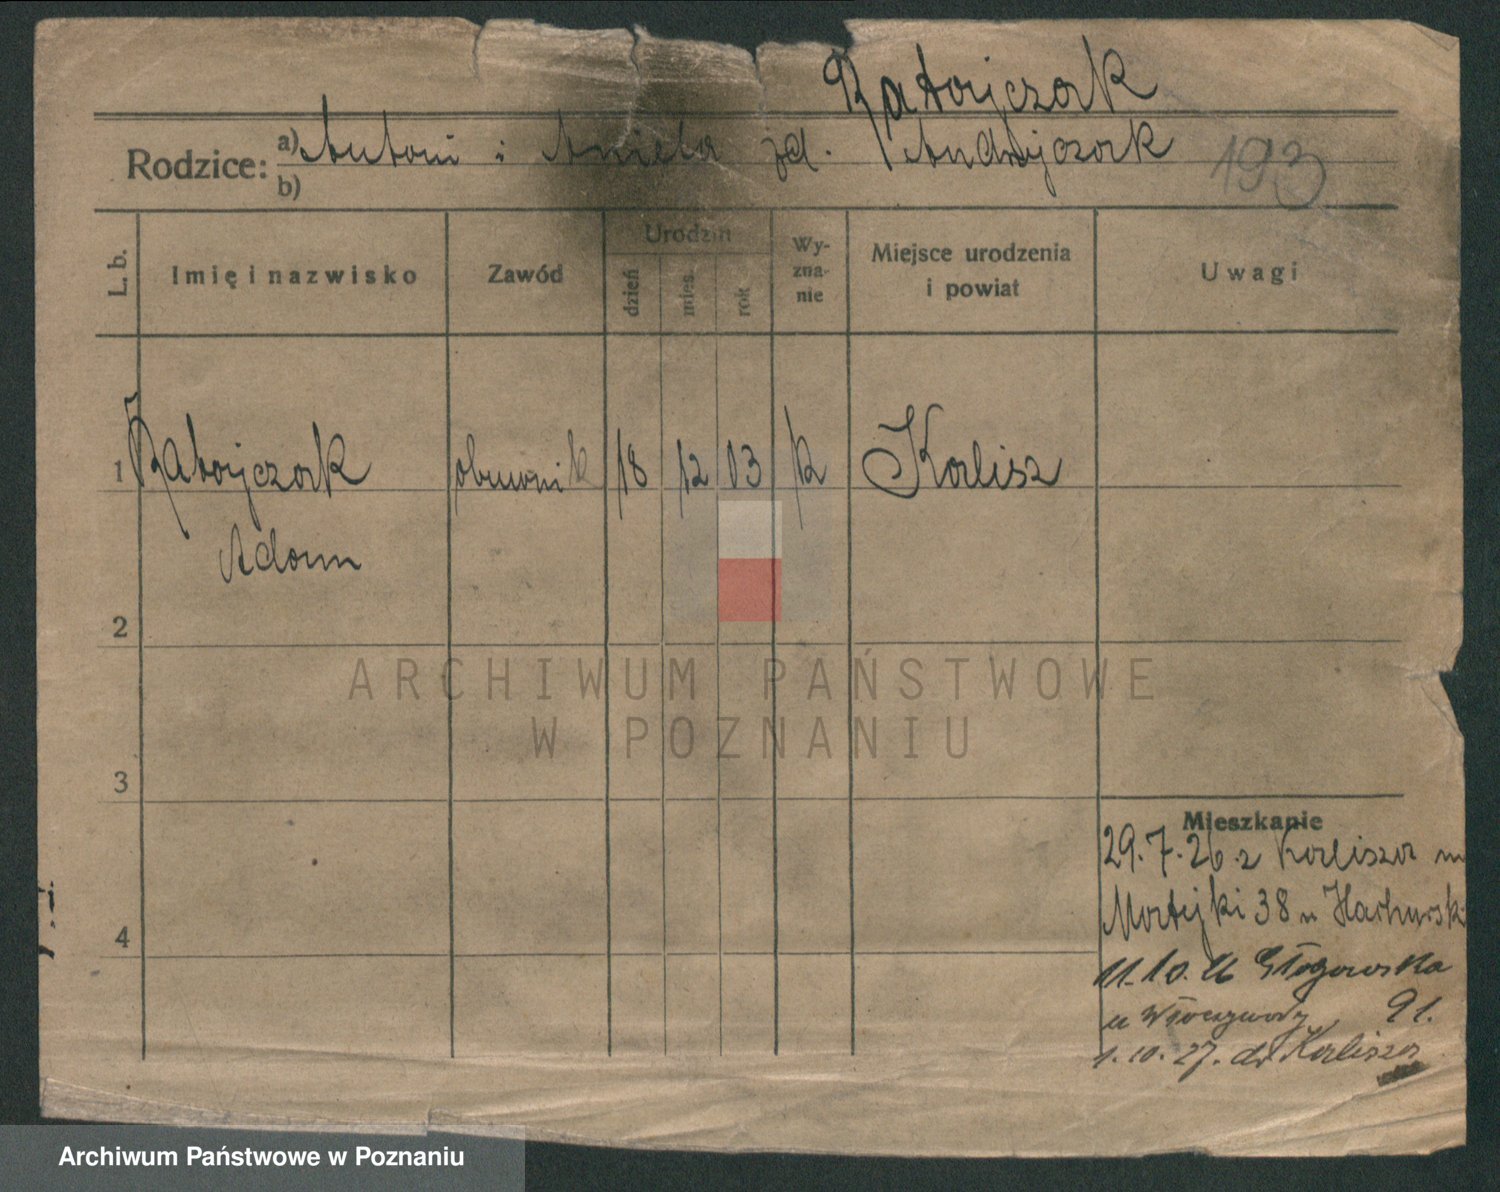 Ratajczak
Rodzice: a) Antoni i Aniela zd. Andrzejczak
b)
193
L. b. Imię i nazwisko Zawód Urodzin dzień mies. rok Wy-zna-nie Miejsce urodzenia i powiat Uwagi
1 Ratajczak 18 12 03 k Kalisz
Adam
2
ARCHIWUM PAŃSTWOWE
W POZNANIU
3
Mieszkanie
29.7.26 z Kalisza
Matejki 38 u
4
11.10.26 Głogowska
u 91.
1.10.27. do Kalisza
Archiwum Państwowe w Poznaniu